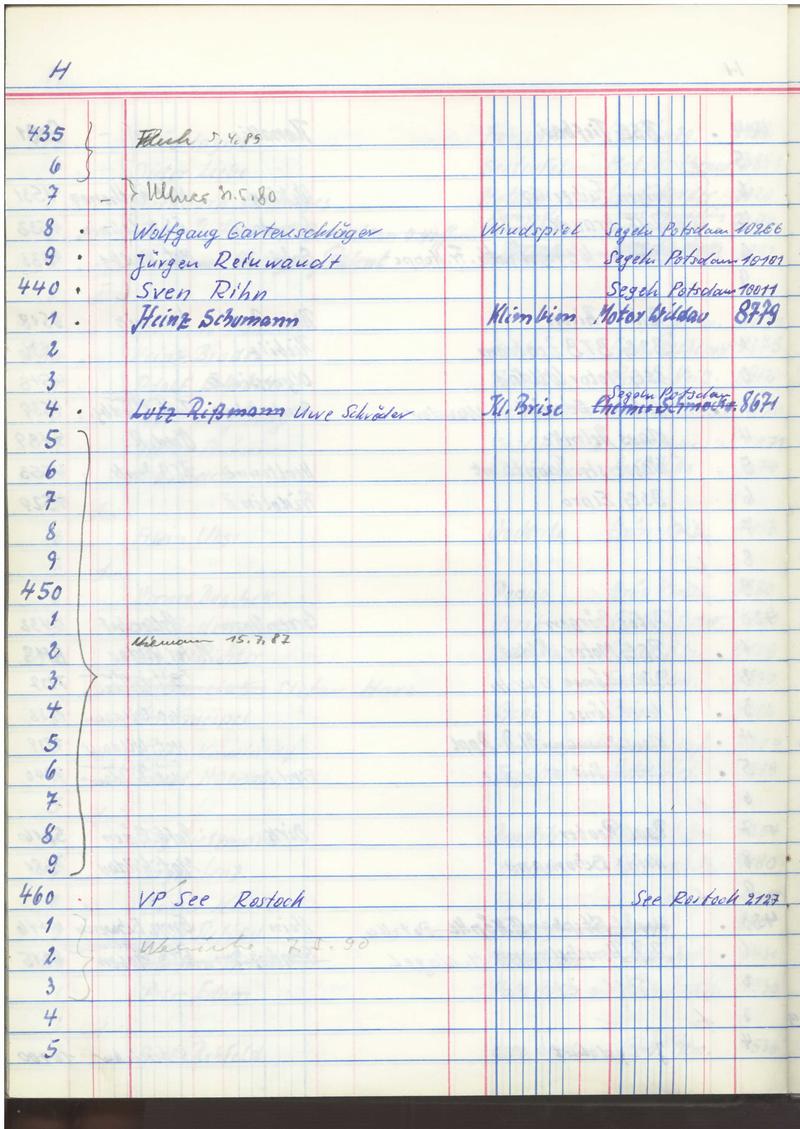 H
435 5.4.89
6
7 - 80
8 . Wolfgang Gartenschläger Windspiel Segeln Potsdam 10266
9 . Jürgen Reinwandt Segeln Potsdam 10101
440 . Sven Rihn Segeln Potsdam 10011
1 . Heinz Schumann Klimbim Motor Wildau 8779
2
3
4 . Lutz Rißmann Uwe Schröder Kl. Brise Segeln Potsdam Chemie 8671
5
6
7
8
9
450
1
2 Niemann 15.7.87
3
4
5
6
7
8
9
460 . VP See Rostock See Rostock 2127
1
2 90
3
4
5